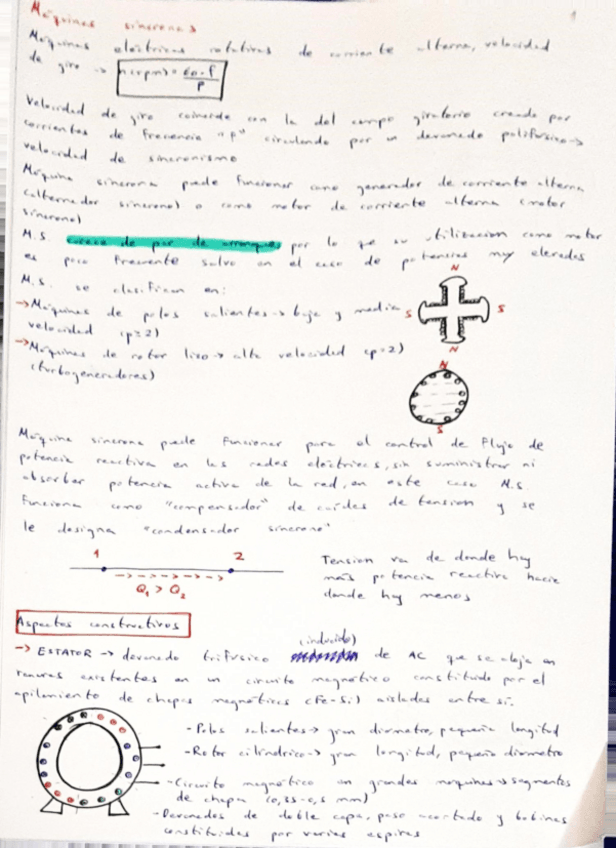 Máquinas síncronas
1
Máquinas eléctricas rotativas de corriente alterna, velocidad
de giro → n(rpm) = 60·f / p
Velocidad de giro coincide con la del campo giratorio creado por
corrientes de frecuencia "f" circulando por un devanado polifásico →
velocidad de sincronismo
Máquina síncrona puede funcionar como generador de corriente alterna
(alternador síncrono) o como motor de corriente alterna (motor
síncrono)
M.S. carece de par de arranque, por lo que su utilización como motor
es poco frecuente salvo en el caso de potencias muy elevadas
M.S. se clasifican en:
→ Máquinas de polos salientes → baja y media
velocidad (p≥2)
→ Máquinas de rotor liso → alta velocidad (p=2)
(turbogeneradores)
N
S
S
N
N
S
Máquina síncrona puede funcionar para el control de flujo de
potencia reactiva en las redes eléctricas, sin suministrar ni
absorber potencia activa de la red, en este caso M.S.
funciona como "compensador" de caídas de tensión y se
le designa "condensador síncrono"
1
2
Q1 > Q2
Tensión va de donde hay
más potencia reactiva hacia
donde hay menos
Aspectos constructivos
(inducido)
→ ESTATOR → devanado trifásico de AC que se aloja en
ranuras existentes en un circuito magnético constituido por el
apilamiento de chapas magnéticas (Fe-Si) aisladas entre sí.
- Polos salientes → gran diámetro, pequeña longitud
- Rotor cilíndrico → gran longitud, pequeño diámetro
- Circuito magnético en grandes máquinas → segmentos
de chapa (0,35-0,5 mm)
- Devanados de doble capa, paso acortado y bobinas
constituidas por varias espiras